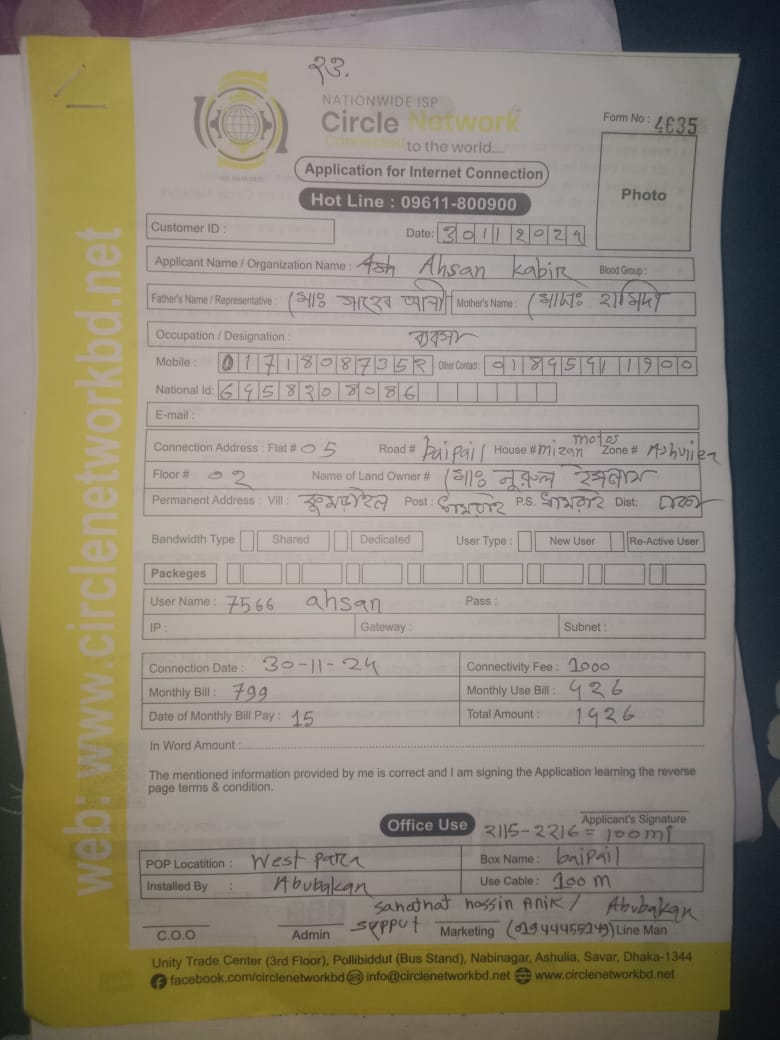 ২৩.
NATIONWIDE ISP
Circle Network
Connected to the world....
Form No : 4635
Application for Internet Connection
Hot Line : 09611-800900
Photo
Customer ID : Date: 30112024
Applicant Name / Organization Name : Ahsan Kabir Blood Group :
Father's Name / Representative : মোঃ সাহেব আলী Mother's Name : মোসাঃ
Occupation / Designation : ব্যবসা
Mobile : 0171808735২ Other Contact: 01
National Id:
E-mail :
Connection Address : Flat # 05 Road # baipail House # mizan motor Zone #
Floor # 02 Name of Land Owner # মোঃ নুরুল ইসলাম
Permanent Address : Vill : Post : ধামরাই P.S. ধামরাই Dist: ঢাকা
Bandwidth Type Shared Dedicated User Type : New User Re-Active User
Packeges
User Name : 7566 ahsan Pass :
IP : Gateway : Subnet :
Connection Date : 30-11-24 Connectivity Fee : 1000
Monthly Bill : 799 Monthly Use Bill : 426
Date of Monthly Bill Pay : 15 Total Amount : 1426
In Word Amount :
The mentioned information provided by me is correct and I am signing the Application learning the reverse
page terms & condition.
Applicant's Signature
Office Use 2115-2216 = 100mi
POP Locatition : West para Box Name : baipail
Installed By : Abubakar Use Cable : 100 m
Anik / Abubakar
C.O.O Admin Marketing Line Man
Unity Trade Center (3rd Floor), Pollibiddut (Bus Stand), Nabinagar, Ashulia, Savar, Dhaka-1344
facebook.com/circlenetworkbd info@circlenetworkbd.net www.circlenetworkbd.net
web: www.circlenetworkbd.net